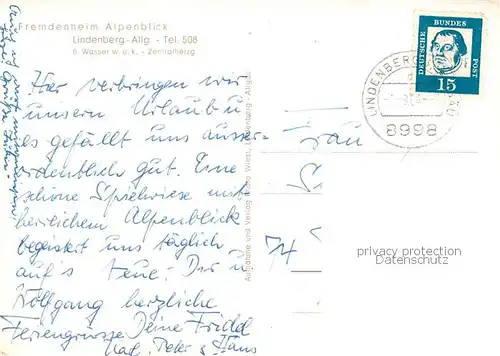 Fremdenheim Alpenblick
Lindenberg-Allg. - Tel. 508
fl. Wasser w. u. k. - Zentralheizg
Hier verbringen wir
unsern Urlaub u
es gefällt uns ausser-
ordentlich gut. Eine
schöne Spielwiese mit
herrlichem Alpenblick
begeistert uns täglich
auf's Neue. Dir u
Wolfgang herzliche
Feriengrüsse Deine Friedel
Karl, Peter & Hans
Auch ich
Grüße
Aufnahme und Verlag Wiest, Lindenberg - Allgäu
Frau
DEUTSCHE BUNDES POST
15
LINDENBERG
8998
privacy protection
Datenschutz